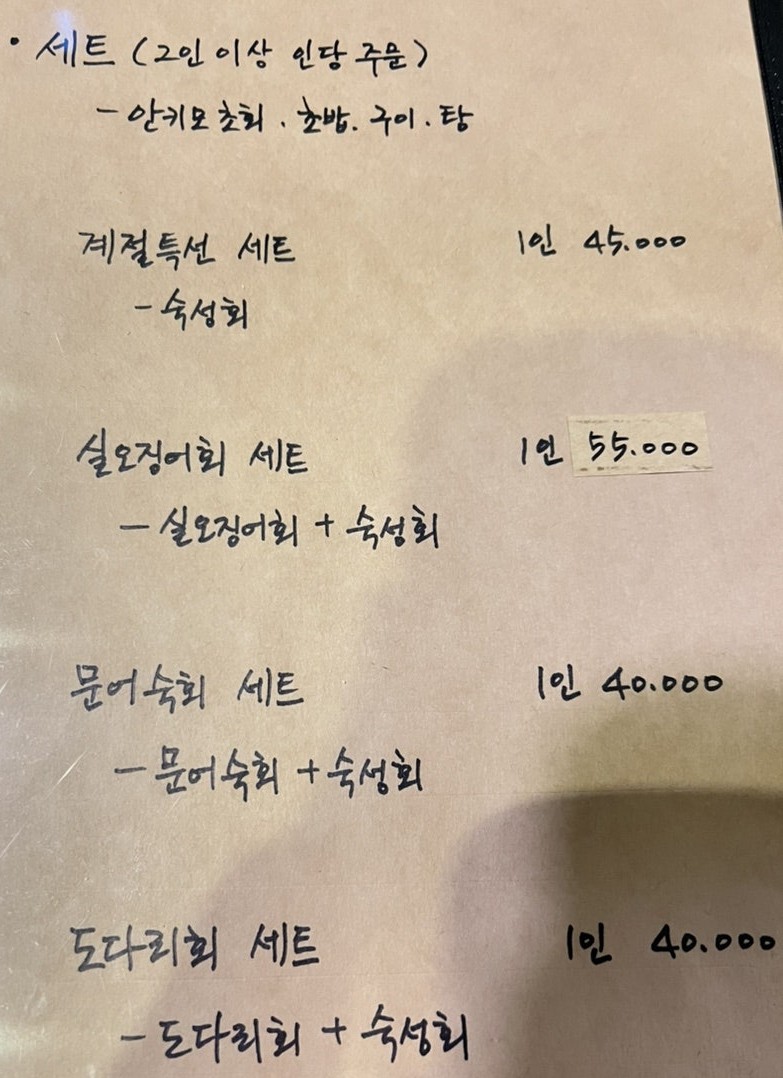 • 세트 (2인 이상 인당 주문)
- 안키모 초회. 초밥. 구이. 탕
계절특선 세트 1인 45.000
- 숙성회
실오징어회 세트 1인 55.000
- 실오징어회 + 숙성회
문어숙회 세트 1인 40.000
- 문어숙회 + 숙성회
도다리회 세트 1인 40.000
- 도다리회 + 숙성회